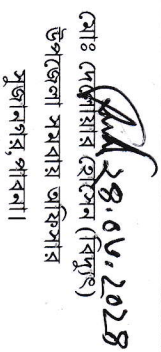 ২৪.০৮.২০২৪
মোঃ দেলোয়ার হোসেন (বিদ্যুৎ)
উপজেলা সমবায় অফিসার
সুজানগর, পাবনা।